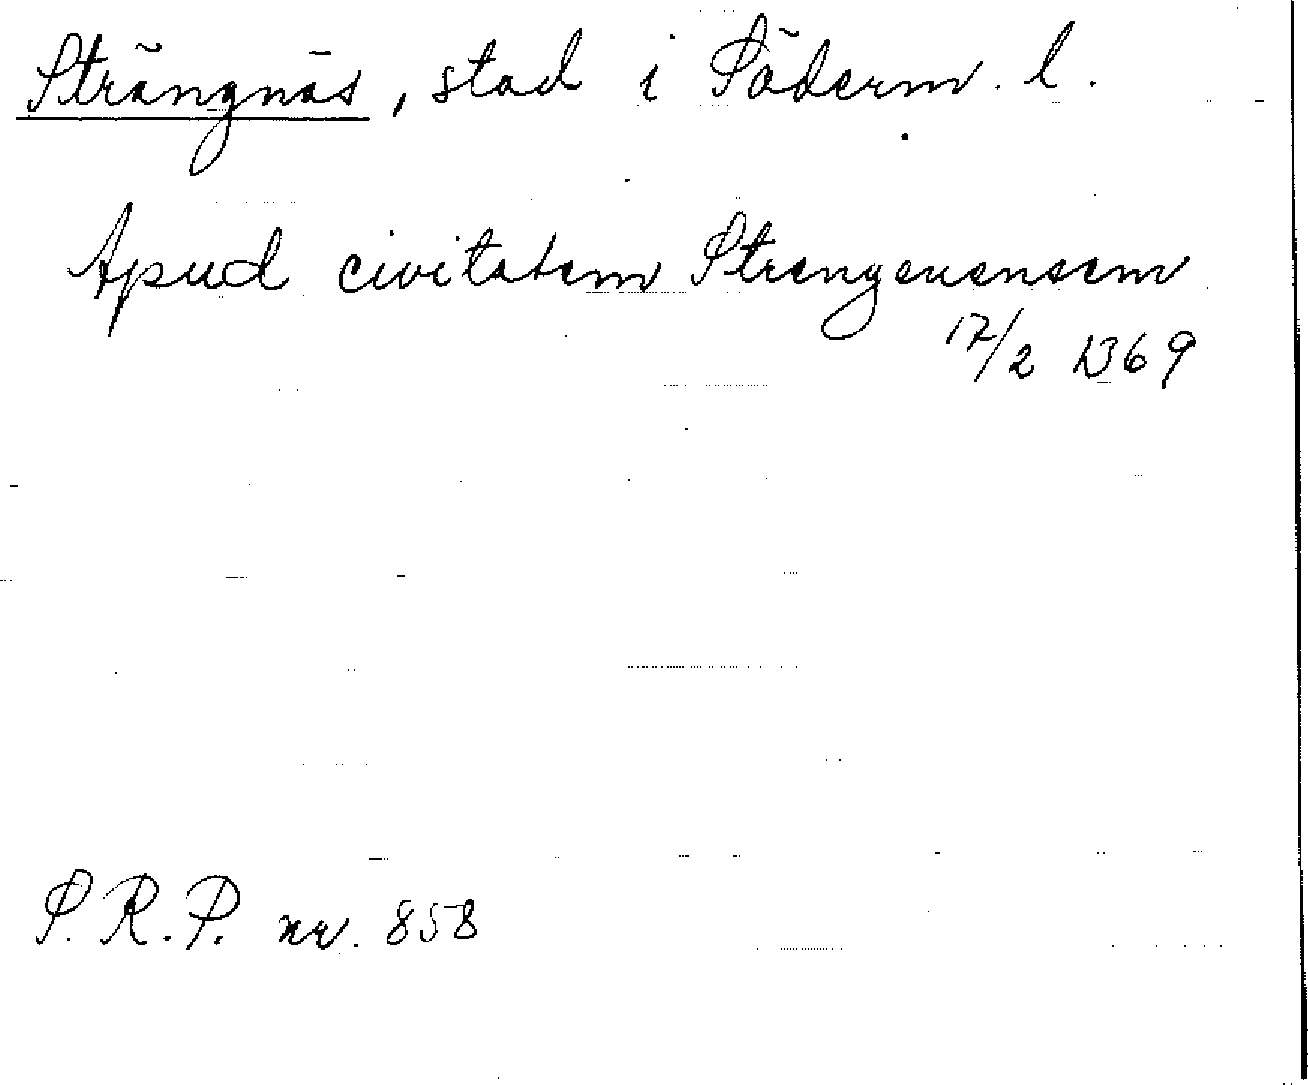 Strängnäs, stad i Söderm. l.
Apud civitatem Strengenensem
17/2 1369
S.R.P. nr. 858